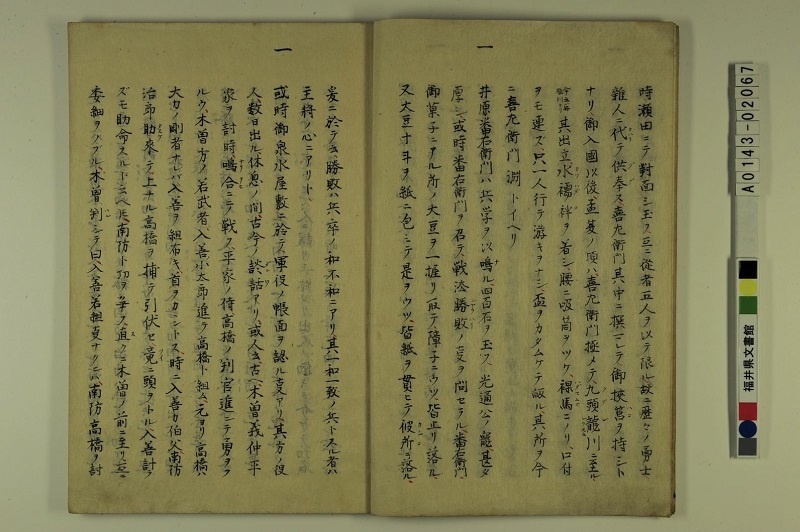 一
時瀬田ニテ對面シ玉ス互ニ從者五人ヲ以テ限ル故ニ歴々ノ勇士
雜人ニ代テ供奉ス喜左衛門其中ニ撰マレテ御挾筥ヲ持シト
ナリ御入國以後孟夏ノ頃ハ喜左衛門極メテ九頭龍川ニ至ル
其出立水襦袢ヲ着シ腰ニ吸筒ヲツケ裸馬ニノリ口付
ヲモ連ズ只一人行テ游キヲナシ盃ヲカタムケテ皈ル其所ヲ今
ニ喜左衛門渕トイヘリ
一
井原番右衛門ハ兵学ヲ以鳴ル四百石ヲ玉ス光通公ノ寵甚タ
厚シ或時番右衛門ヲ召テ戦法勝敗ノ㕝ヲ問セラル番右衛門
御菓子ニアル所ノ大豆ヲ一握リ取テ障子ニウツ皆止リ落ル
又大豆十斗ヲ紙ニ包ミニテ是ヲウツ皆紙ヲ貫ヒテ彼所ニ落ル
爰ニ於テ勝敗ハ兵卒ノ和不和ニアリ其一和一致ノ兵トスル者ハ
主將ノ心ニアリト
一
或時御泉水屋敷ニ於テ軍役ノ帳面ヲ認ル㕝アリ其方ノ役
人数日出ル休息ノ間古今ノ談話アリ或人云古木曽義仲平
家ヲ討時鳴合ニテ戦フ平家ノ侍高橋ノ判官進ミテ勇ヲフ
ルウ木曽方ノ若武者入善小太郎進テ高橋ト組ム元ヨリ高橋ハ
大力ノ剛者ナレハ入善ヲ組布キ首ヲカヽントス時ニ入善カ伯父南防
治郎助來テ上ナル高橋ヲ捕テ引伏セ竟ニ頭ヲトル入善討ラ
ズモ助命スルトニヘ凡南防ト功ヲ爭ス直クニ木曽ノ前ニ至リ互ニ
委細ヲノブル木曽判シテ曰入善若組㕝ナクンハ南防高橋ヲ討
福井県文書館
A0143-02067